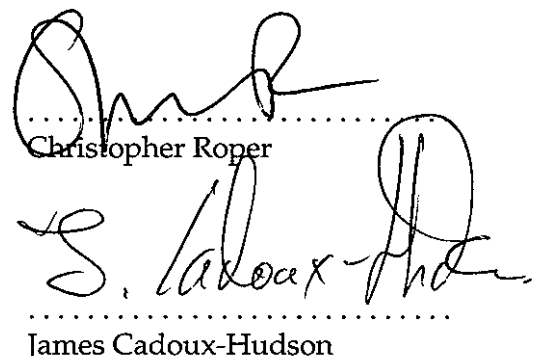 Christopher Roper
J. Cadoux-Hudson
James Cadoux-Hudson